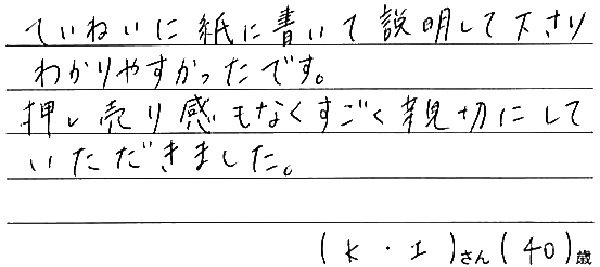 ていねいに紙に書いて説明して下さり
わかりやすかったです。
押し売り感もなくすごく親切にして
いただきました。
(K・I)さん(40)歳